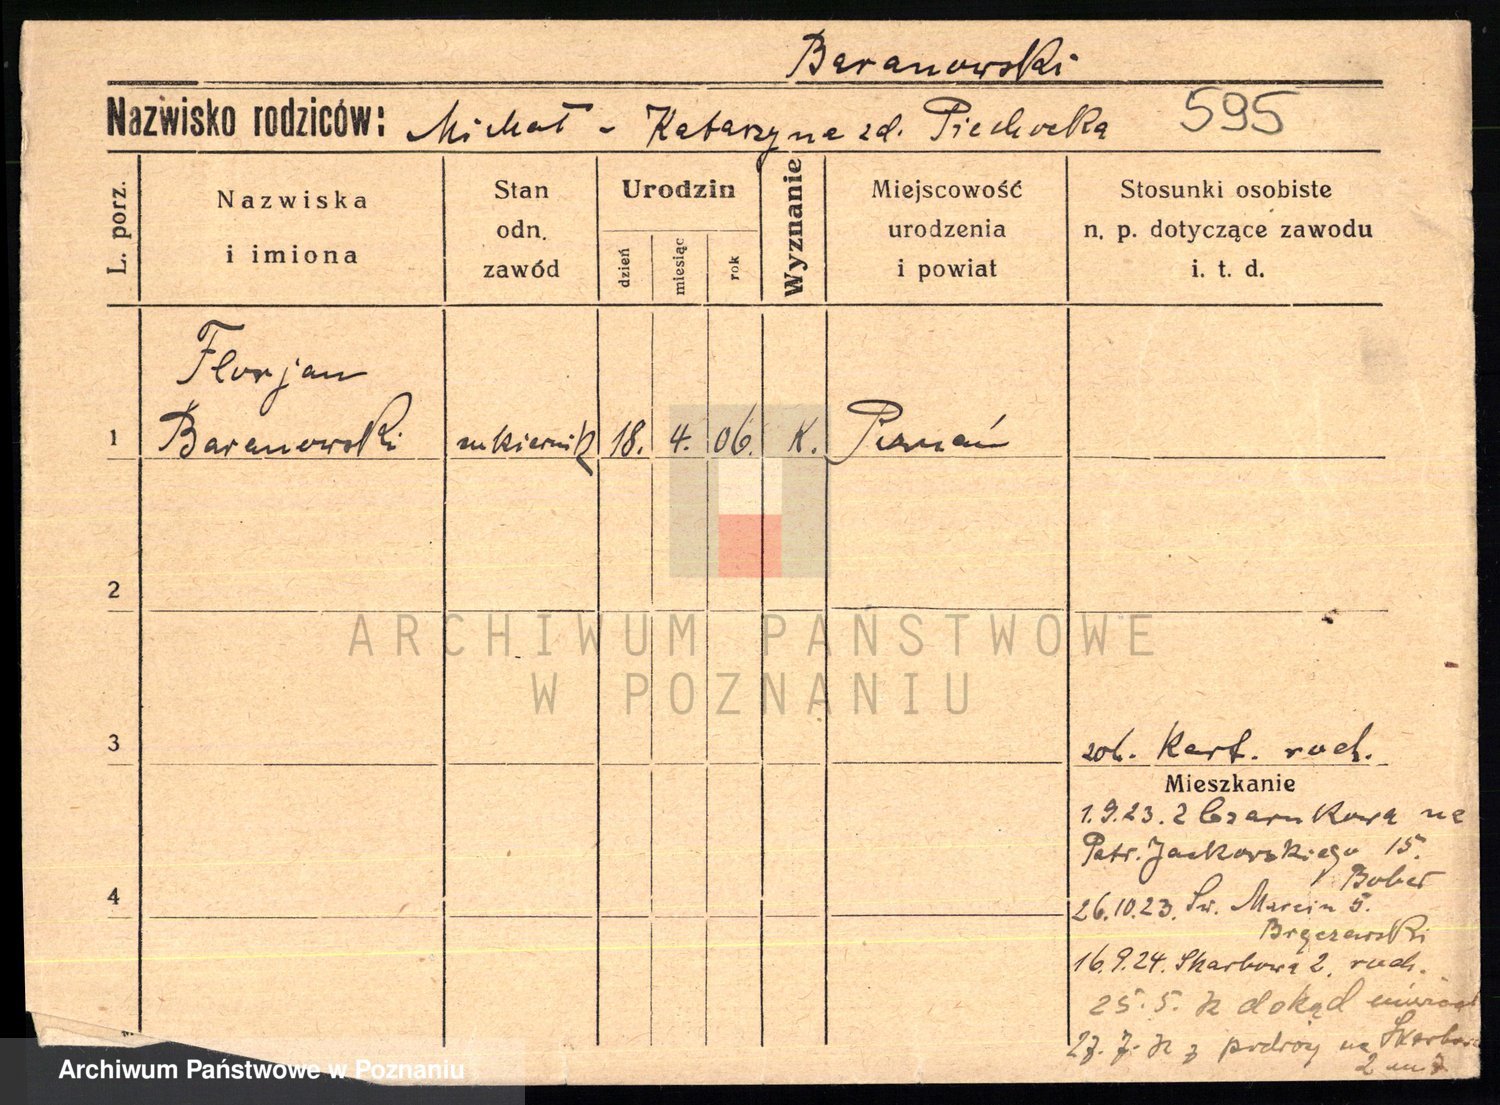 Baranowski
Nazwisko rodziców: Michał - Katarzyna zd. Piechocka 595
L. porz.
Nazwiska
i imiona
Stan
odn.
zawód
Urodzin
dzień
miesiąc
rok
Wyznanie
Miejscowość
urodzenia
i powiat
Stosunki osobiste
n. p. dotyczące zawodu
i. t. d.
Florjan
1 Baranowski cukiernik 18. 4. 06. K. Poznań
2
ARCHIWUM PAŃSTWOWE
W POZNANIU
3
zob. Kart. rodz.
Mieszkanie
1.9.23. z Czarnkowa na
Patr. Jackowskiego 15.
Bober
4
26.10.23. Św. Marcin 5.
Bryczewski
16.9.24. Skarbowa 2. rodz.
25.5. dokąd
27.7. z podróży na Skarbowa
2
Archiwum Państwowe w Poznaniu